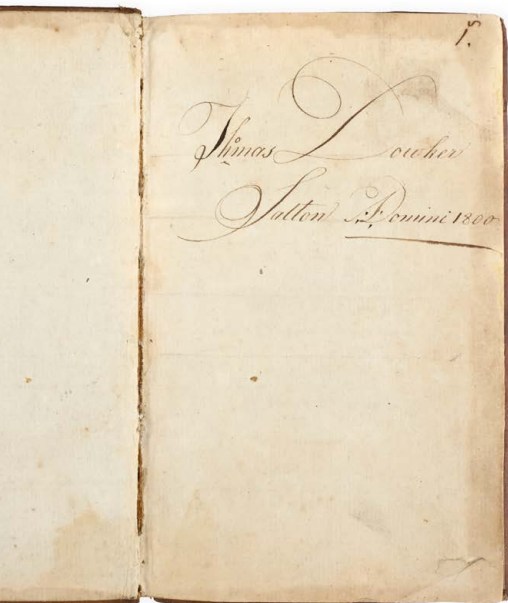 1.s
Thomas Dowker
Salton A: Domini 1800